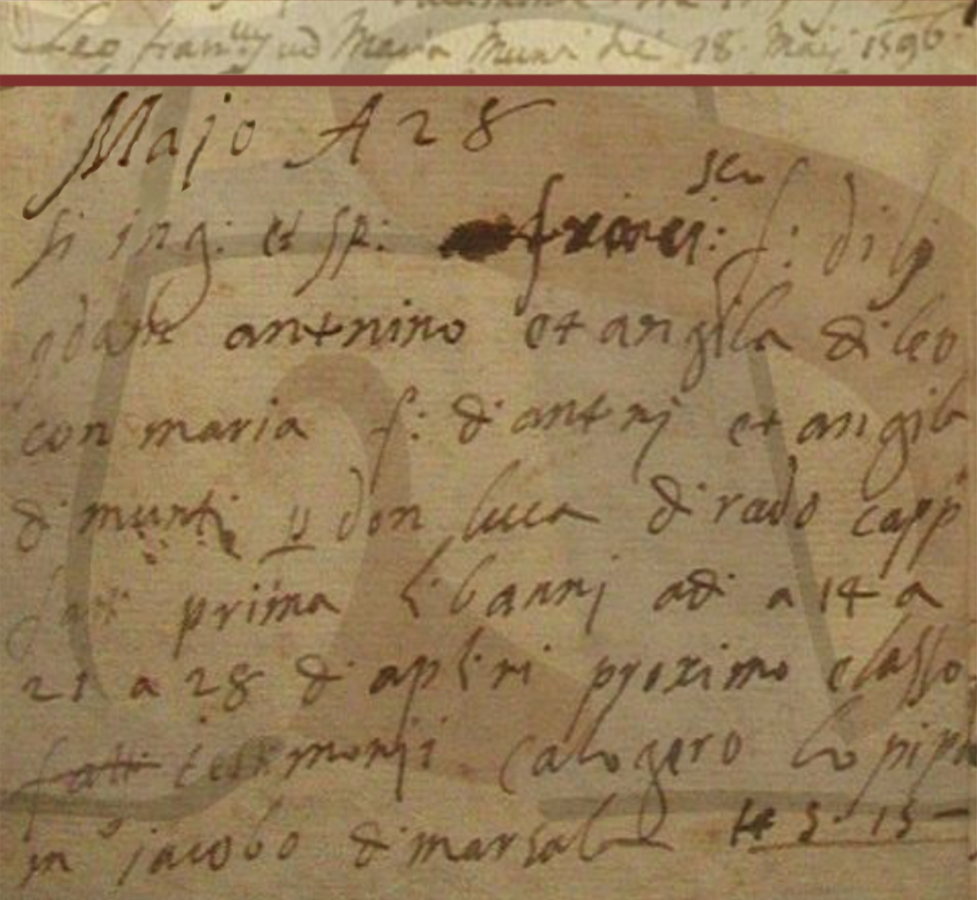 Leo Maria Munti dei 28 Maij 1596
Majo A 28
si ing: et sp: franci: sco f: di li
antnino et angila di leo
con maria f: di antnj et angila
di munti don luca di rado capp
prima li bannj adi a 14 a
21 a 28 di aplri proximo elasso
fatti testimonij calogero lo pipo
mo jacobo di marsala 3 - 15 -